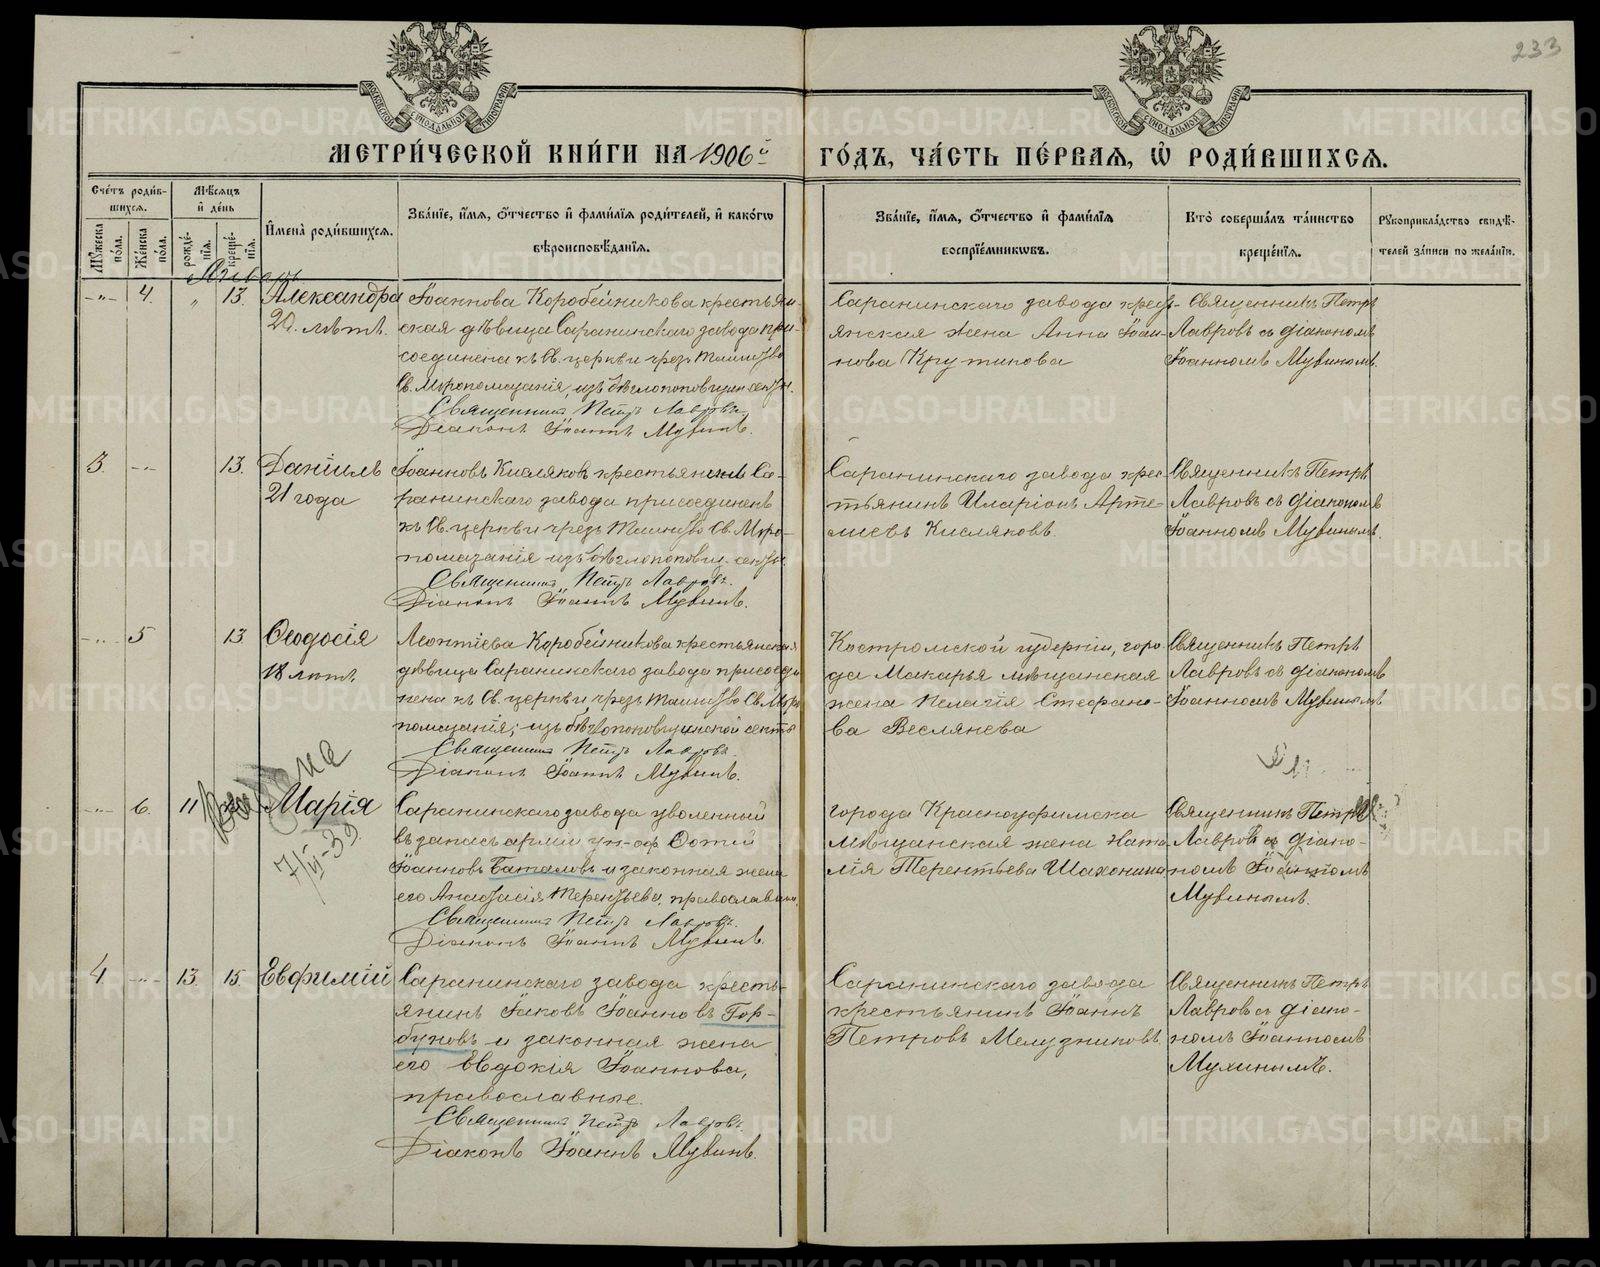 233
МЕТРИЧЕСКОЙ КНИГИ НА 1906й ГОДЪ, ЧАСТЬ ПЕРВАЯ, Ѡ РОДИВШИХСЯ.
Счетъ родив-
шихся.
Мужеска пола.
Женска пола.
Мѣсяцъ
и день
рожде-
нія.
креще-
нія.
Имена родившихся.
Званіе, имя, отчество и фамилія родителей, и какого
вѣроисповѣданія.
Званіе, имя, отчество и фамилія
воспріемниковъ.
Кто совершалъ таинство
крещенія.
Рукоприкладство свидѣ-
телей записи по желанію.
Январь
-"- 4. " 13. Александра
20. лѣтъ.
Іоаннова Коробейникова крестьян-
ская дѣвица Саранинскаго завода при-
соединена къ Св. церкви чрезъ таинство
Св. Мѵропомазанія, изъ бѣглопоповщин. секты.
Священникъ Петръ Лавровъ.
Діаконъ Іоаннъ Мухинъ.
Саранинскаго завода крест-
янская жена Анна Іоан-
нова Крутикова
Священникъ Петръ
Лавровъ съ діакономъ
Іоанномъ Мухинымъ.
3. -"- 13. Даніилъ
21 года
Іоанновъ Кисляковъ крестьянинъ Са-
ранинскаго завода присоединенъ
къ Св. церкви чрезъ таинство Св. Мѵро-
помазанія изъ бѣглопоповщ. секты.
Священникъ Петръ Лавровъ.
Діаконъ Іоаннъ Мухинъ.
Саранинскаго завода крес-
тьянинъ Иларіонъ Арте-
миевъ Кисляковъ.
Священникъ Петръ
Лавровъ съ діакономъ
Іоанномъ Мухинымъ.
-"- 5 13 Ѳеодосія
18 лѣтъ
Леонтіева Коробейникова крестьянская
дѣвица Саранинскаго завода присоеди
нена къ Св. церкви чрезъ таинство Св. Мѵро
помазанія, изъ бѣглопоповщинской секты
Священникъ Петръ Лавровъ.
Діаконъ Іоаннъ Мухинъ.
Костромской губерніи, горо
да Макарья мѣщанская
жена Пелагія Стефано-
ва Веслянева
Священникъ Петръ
Лавровъ съ діакономъ
Іоанномъ Мухинымъ
-"- 6. 11 Марія
7/VI-39
Саранинскаго завода уволенный
въ запасъ арміи ун-оф Фотій
Іоанновъ Баталовъ и законная жена
его Анастасія Терентьева, православные.
Священникъ Петръ Лавровъ.
Діаконъ Іоаннъ Мухинъ.
города Красноуфимска
мѣщанская жена Ната
лія Терентьева Шахонина
Священникъ Петръ
Лавровъ съ діако-
номъ Іоанномъ
Мухинымъ.
4 -"- 13. 15. Евфимій
Саранинскаго завода кресть-
янинъ Іаковъ Іоанновъ Гор-
буновъ и законная жена
его Евдокія Іоаннова,
православные.
Священникъ Петръ Лавровъ.
Діаконъ Іоаннъ Мухинъ.
Саранинскаго завода
крестьянинъ Іоаннъ
Петровъ Мелузниковъ
Священникъ Петръ
Лавровъ съ діако-
номъ Іоанномъ
Мухинымъ.
METRIKI.GASO-URAL.RU